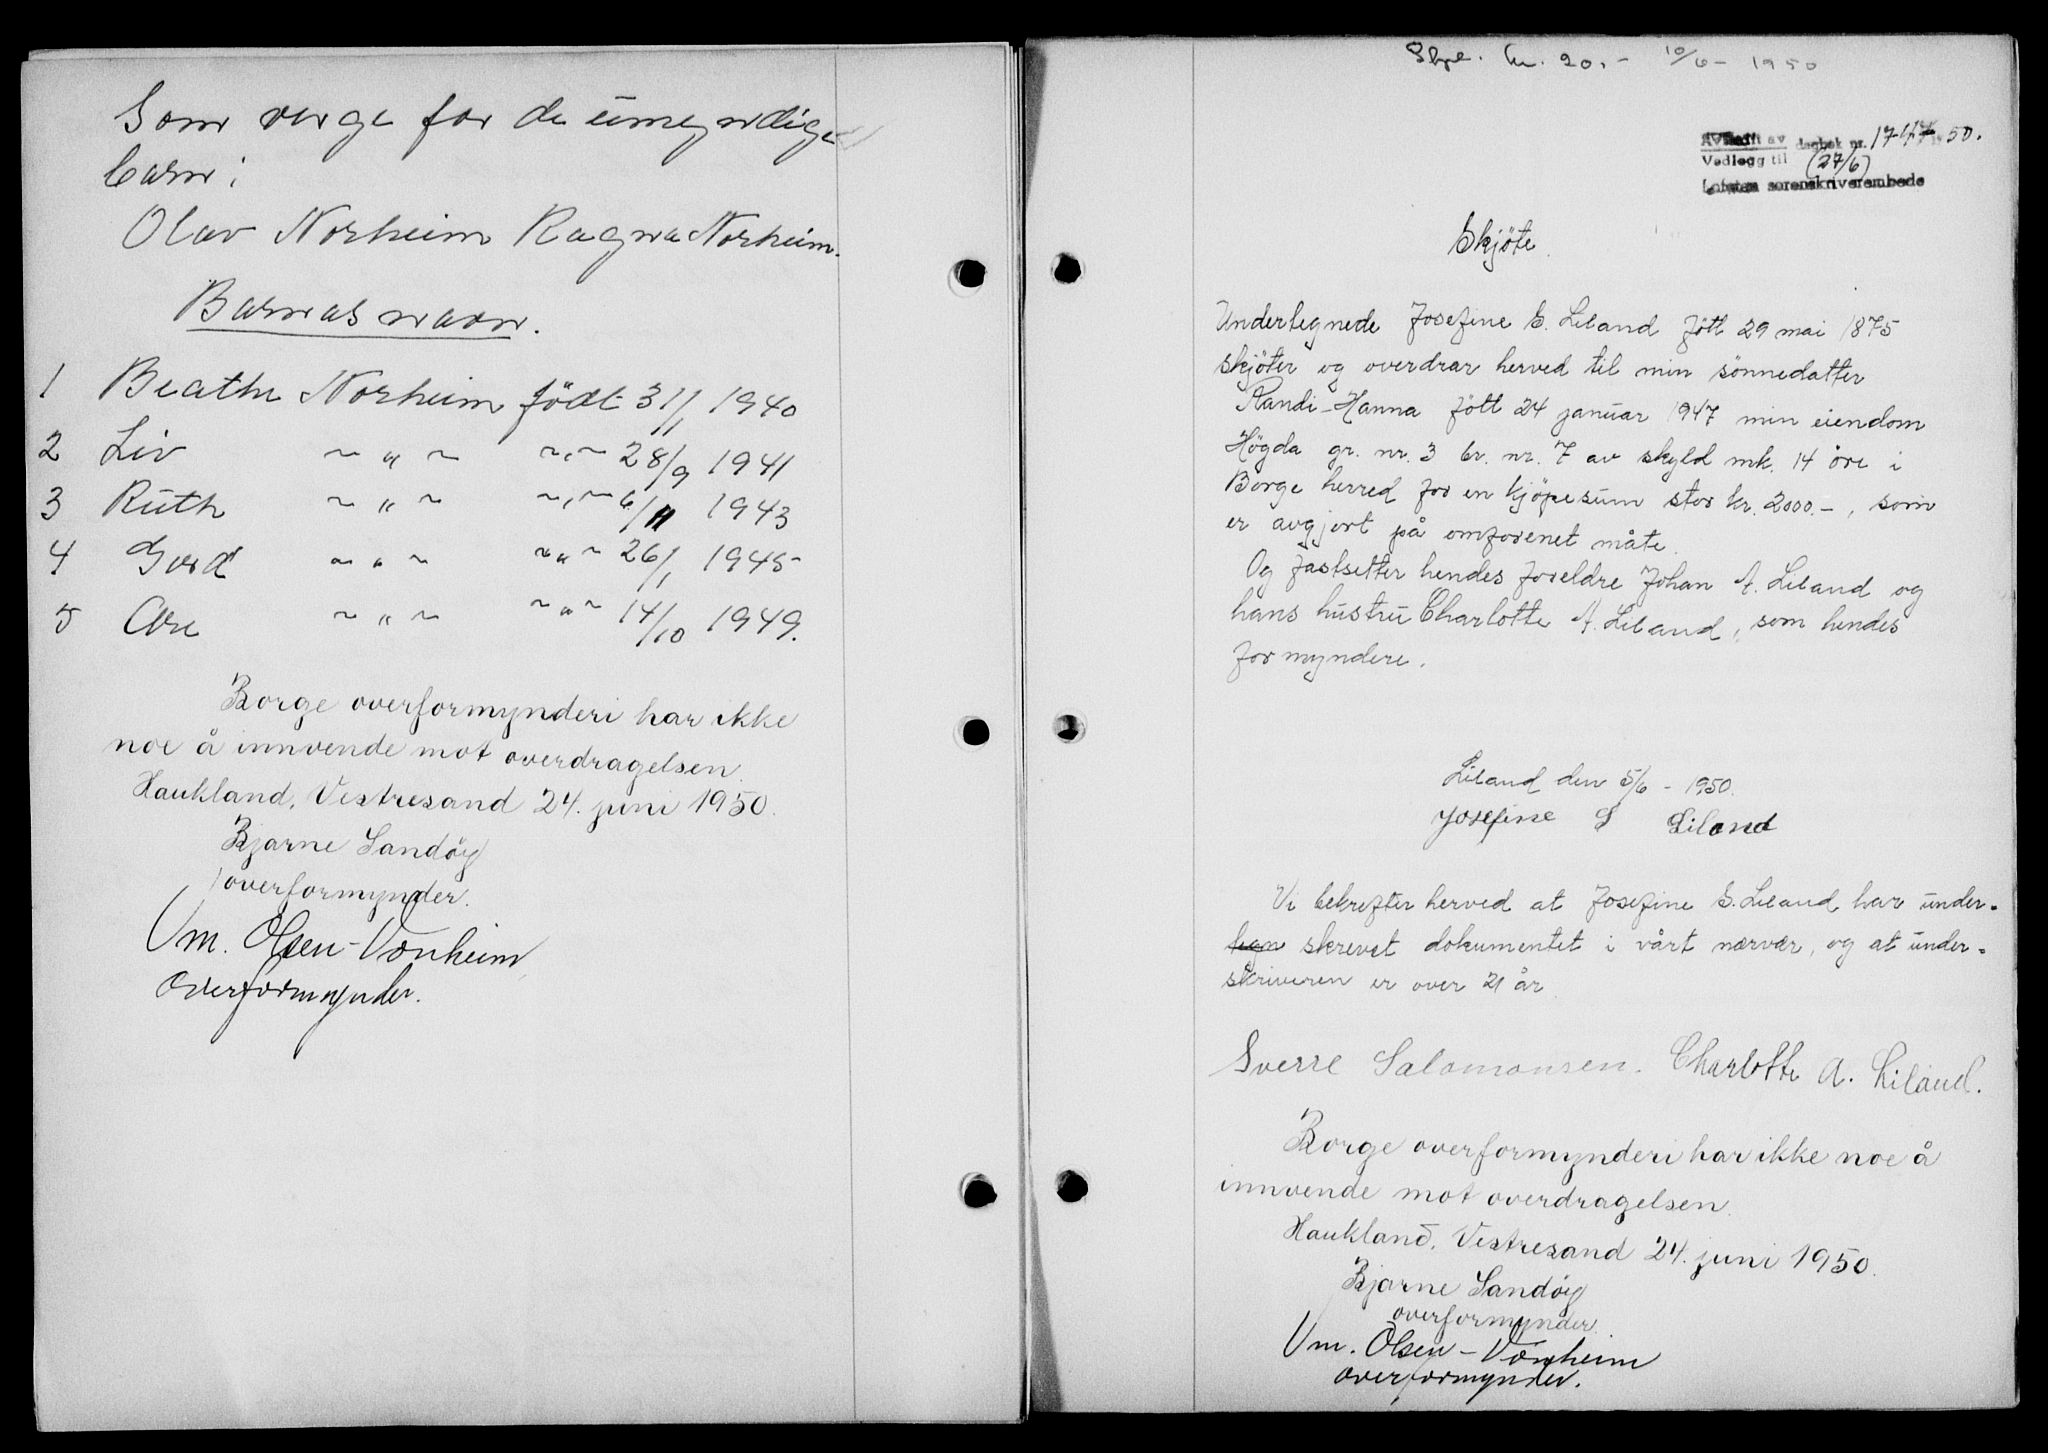 Som verge for de umyndige
barn:
Olav Norheim Ragna Norheim.
Barnas navn.
1 Beathe Norheim födt 31/1 1940
2 Liv ~ " ~ ~ " ~ 28/9 1941
3 Ruth ~ " ~ ~ " ~ 6/11 1943
4 Gerd ~ " ~ ~ " ~ 26/1 1945
5 Åse ~ " ~ ~ " ~ 14/10 1949.
Borge overformynderi har ikke
noe å innvende mot overdragelsen.
Haukland, Vestresand 24. juni 1950.
Bjarne Sandöy
overformynder.
Vm. Olsen-Vonheim
overformynder.
Skjl. kr. 20.- 10/6- 1950
Avskrift av dagbok nr. 1747 1950.
Vedlegg til (27/6)
Lofoten sorenskriverembede
Skjöte.
Undertegnede Josefine S. Liland fött 29 mai 1875
skjöter og overdrar herved til min sönnedatter
Randi-Hanna fött 24 januar 1947 min eiendom
Högda gr. nr. 3 br. nr. 7 av skyld mk. 14 öre i
Borge herred for en kjöpesum stor kr. 2000.-, som
er avgjort på omforenet måte.
Og fastsetter hendes foreldre Johan A. Liland og
hans hustru Charlotte A. Liland, som hendes
formyndere.
Liland den 5/6 - 1950.
Josefine S Liland
Vi bekrefter herved at Josefine S. Liland har under-
tegn skrevet dokumentet i vårt nærvær, og at under-
skriveren er over 21 år.
Sverre Salomonsen. Charlotte A. Liland.
Borge overformynderi har ikke noe å
innvende mot overdragelsen.
Haukland, Vestresand 24. juni 1950.
Bjarne Sandöy
overformynder
Vm. Olsen-Vonheim
overformynder.